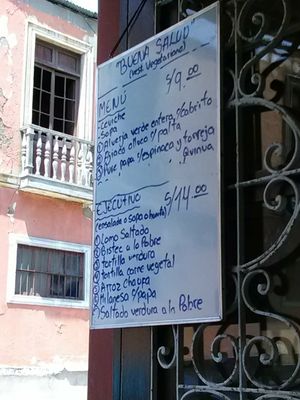 BUENA SALUD
(rest. Vegetariano)
MENÚ S/9.00
-Ceviche
-Sopa
Alverja verde entera s/cabrito
Olluco c/papita
Pure papa s/espinaca y torreja
quinua
EJECUTIVO S/14.00
(ensalada o sopa o
Lomo Saltado
Bistec a lo Pobre
tortilla verdura
tortilla carne vegetal
Arroz Chaufa
Milanesa s/papa
Saltado verdura a lo Pobre